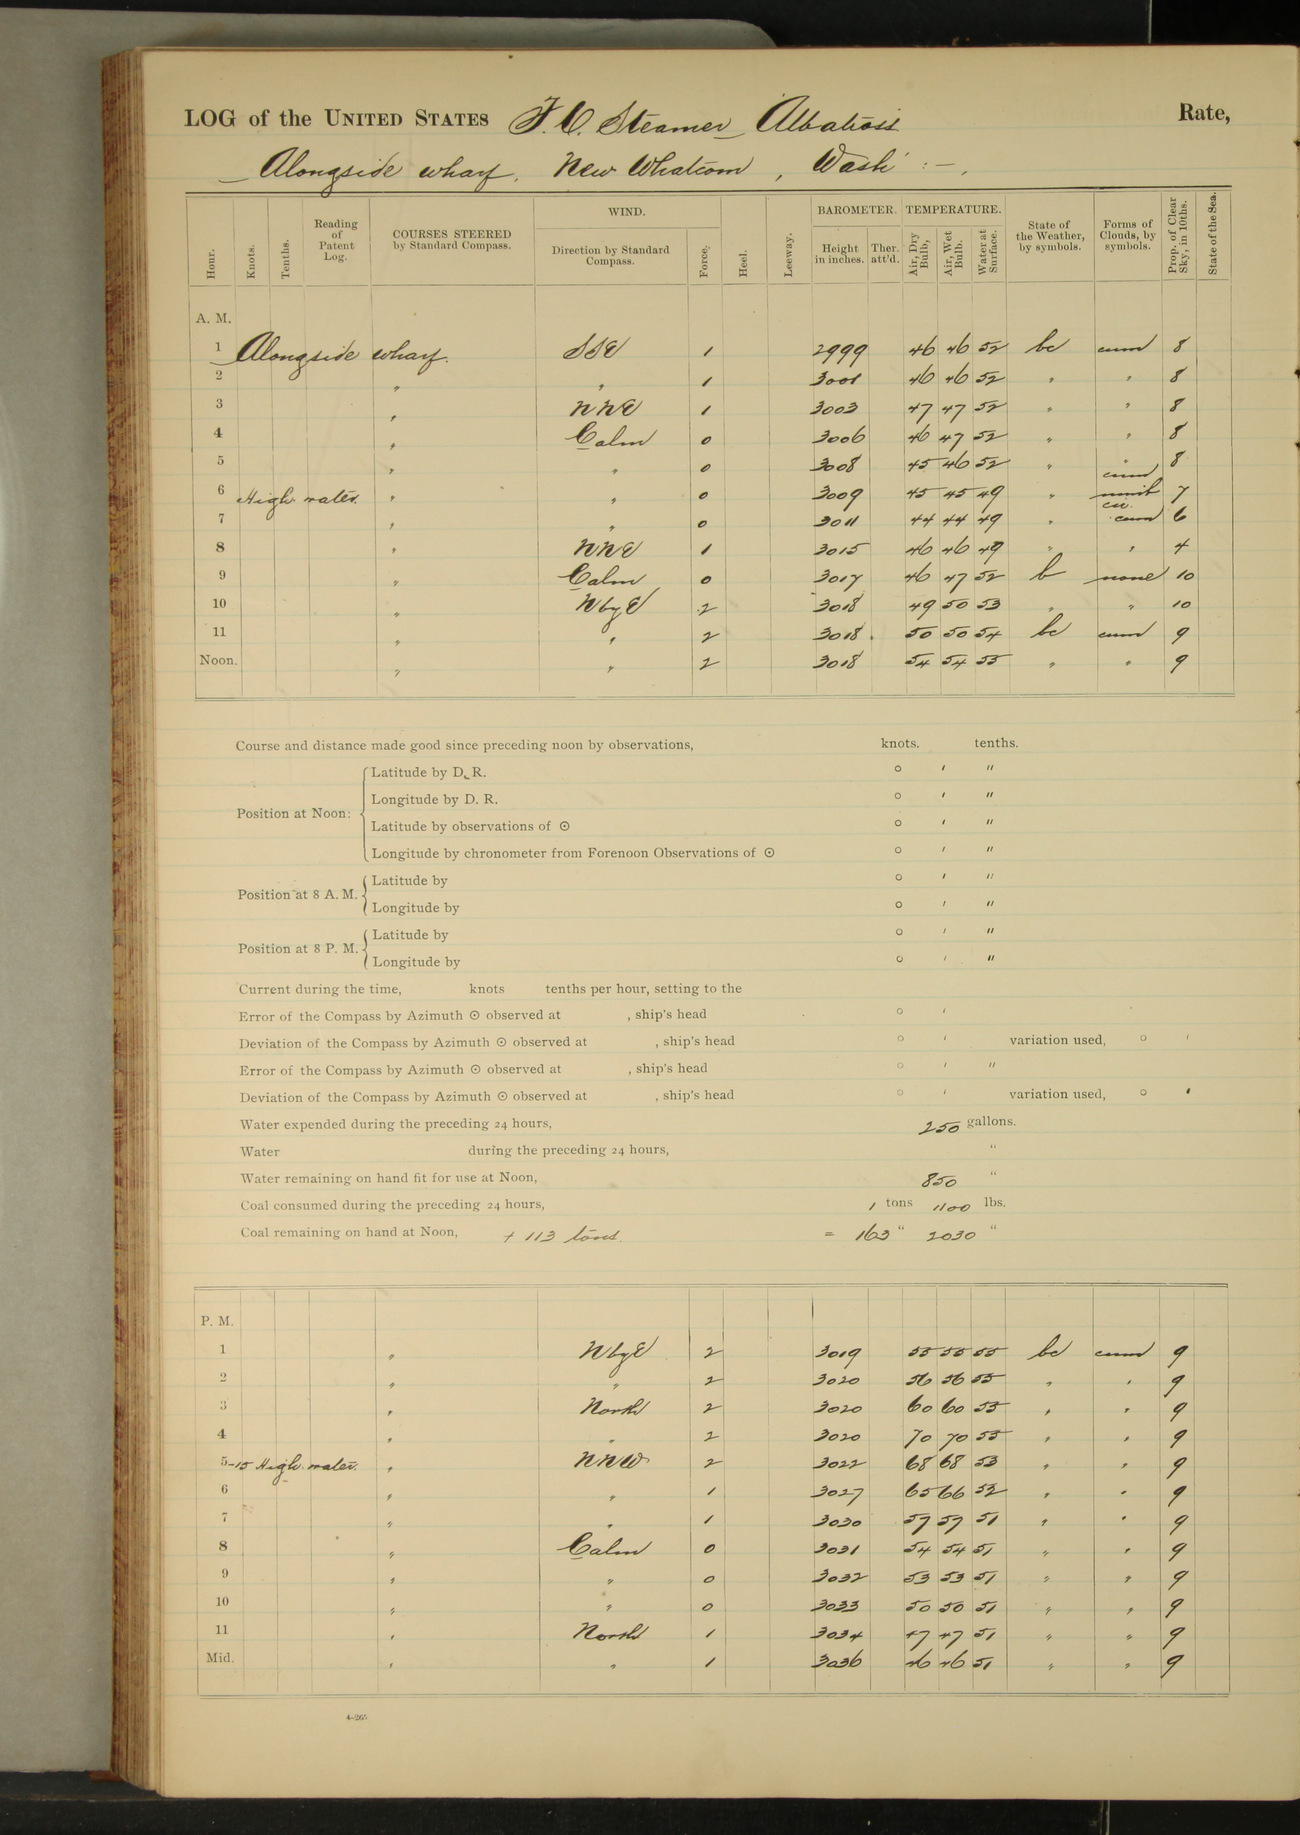 LOG of the UNITED STATES F. C. Steamer Albatross Rate,
Alongside wharf, New Whatcom, Wash :—
Hour. Knots. Tenths. Reading of Patent Log. COURSES STEERED by Standard Compass. WIND. Direction by Standard Compass. Force. Heel. Leeway. BAROMETER. Height in inches. Ther. att'd. TEMPERATURE. Air, Dry Bulb, Air, Wet Bulb. Water at Surface. State of the Weather, by symbols. Forms of Clouds, by symbols. Prop. of Clear Sky, in 10ths. State of the Sea.
A. M.
1 Alongside wharf. SSE 1 2999 46 46 52 bc cum 8
2 " " 1 3001 46 46 52 " " 8
3 " NNE 1 3003 47 47 52 " " 8
4 " Calm 0 3006 46 47 52 " " 8
5 " " 0 3008 45 46 52 " " 8
6 High water. " " 0 3009 45 45 49 " cum nimb 7
7 " " 0 3011 44 44 49 " cu. cum 6
8 " NNE 1 3015 46 46 49 " " 4
9 " Calm 0 3017 46 47 52 b none 10
10 " NbyE 2 3018 49 50 53 " " 10
11 " " 2 3018. 50 50 54 bc cum 9
Noon. " " 2 3018 54 54 55 " " 9
Course and distance made good since preceding noon by observations, knots. tenths.
Position at Noon: Latitude by D. R. ° ′ ″
Longitude by D. R. ° ′ ″
Latitude by observations of ⊙ ° ′ ″
Longitude by chronometer from Forenoon Observations of ⊙ ° ′ ″
Position at 8 A. M. Latitude by ° ′ ″
Longitude by ° ′ ″
Position at 8 P. M. Latitude by ° ′ ″
Longitude by ° ′ ″
Current during the time, knots tenths per hour, setting to the
Error of the Compass by Azimuth ⊙ observed at , ship's head ° ′
Deviation of the Compass by Azimuth ⊙ observed at , ship's head ° ′ variation used, ° ′
Error of the Compass by Azimuth ⊙ observed at , ship's head ° ′ ″
Deviation of the Compass by Azimuth ⊙ observed at , ship's head ° ′ variation used, ° ′
Water expended during the preceding 24 hours, 250 gallons.
Water during the preceding 24 hours, "
Water remaining on hand fit for use at Noon, 850 "
Coal consumed during the preceding 24 hours, 1 tons 1100 lbs.
Coal remaining on hand at Noon, + 113 tons. = 163 " 2030 "
P. M.
1 " NbyE 2 3019 55 55 55 bc cum 9
2 " " 2 3020 56 56 55 " " 9
3 " North 2 3020 60 60 55 " " 9
4 " " 2 3020 70 70 55 " " 9
5-15 High water. " NNW 2 3022 68 68 53 " " 9
6 " " 1 3027 65 66 52 " " 9
7 " " 1 3030 57 57 51 " " 9
8 " Calm 0 3031 54 54 51 " " 9
9 " " 0 3032 53 53 51 " " 9
10 " " 0 3033 50 50 51 " " 9
11 " North 1 3034 47 47 51 " " 9
Mid. " " 1 3036 46 46 51 " " 9
4-265